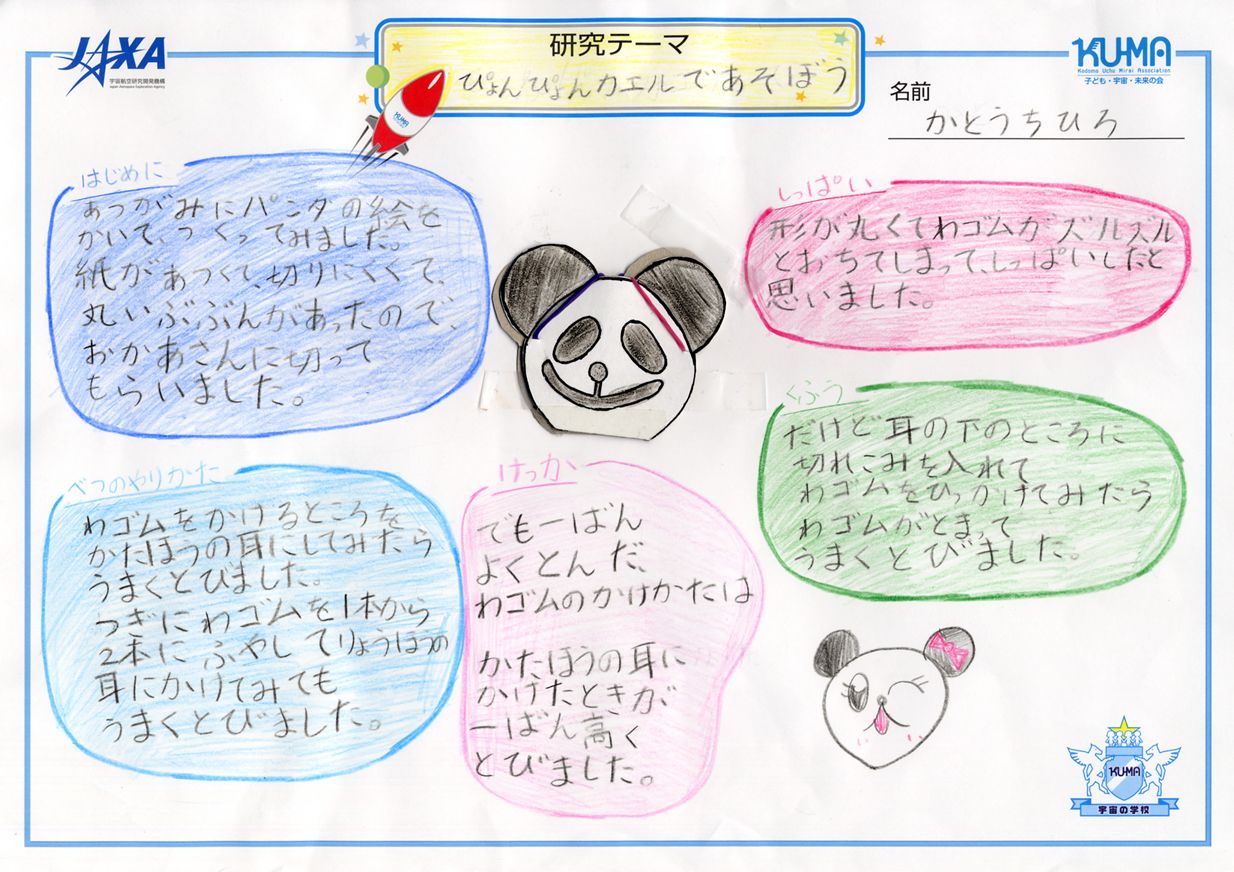 JAXA
宇宙航空研究開発機構
Japan Aerospace Exploration Agency
研究テーマ
ぴょんぴょんカエルであそぼう
KUMA
KUMA
Kodomo Uchu Mirai Association
子ども・宇宙・未来の会
名前
かとうちひろ
はじめに
あつがみにパンダの絵を
かいて、つくってみました。
紙があつくて、切りにくくて、
丸いぶぶんがあったので、
おかあさんに切って
もらいました。
しっぱい
形が丸くてわゴムがズルズル
とおちてしまって、しっぱいしたと
思いました。
くふう
だけど耳の下のところに
切れこみを入れて
わゴムをひっかけてみたら
わゴムがとまって
うまくとびました。
べつのやりかた
わゴムをかけるところを
かたほうの耳にしてみたら
うまくとびました。
つぎにわゴムを1本から
2本にふやしてりょうほうの
耳にかけてみても
うまくとびました。
けっか
でも一ばん
よくとんだ、
わゴムのかけかたは
かたほうの耳に
かけたときが
一ばん高く
とびました。
KUMA
宇宙の学校